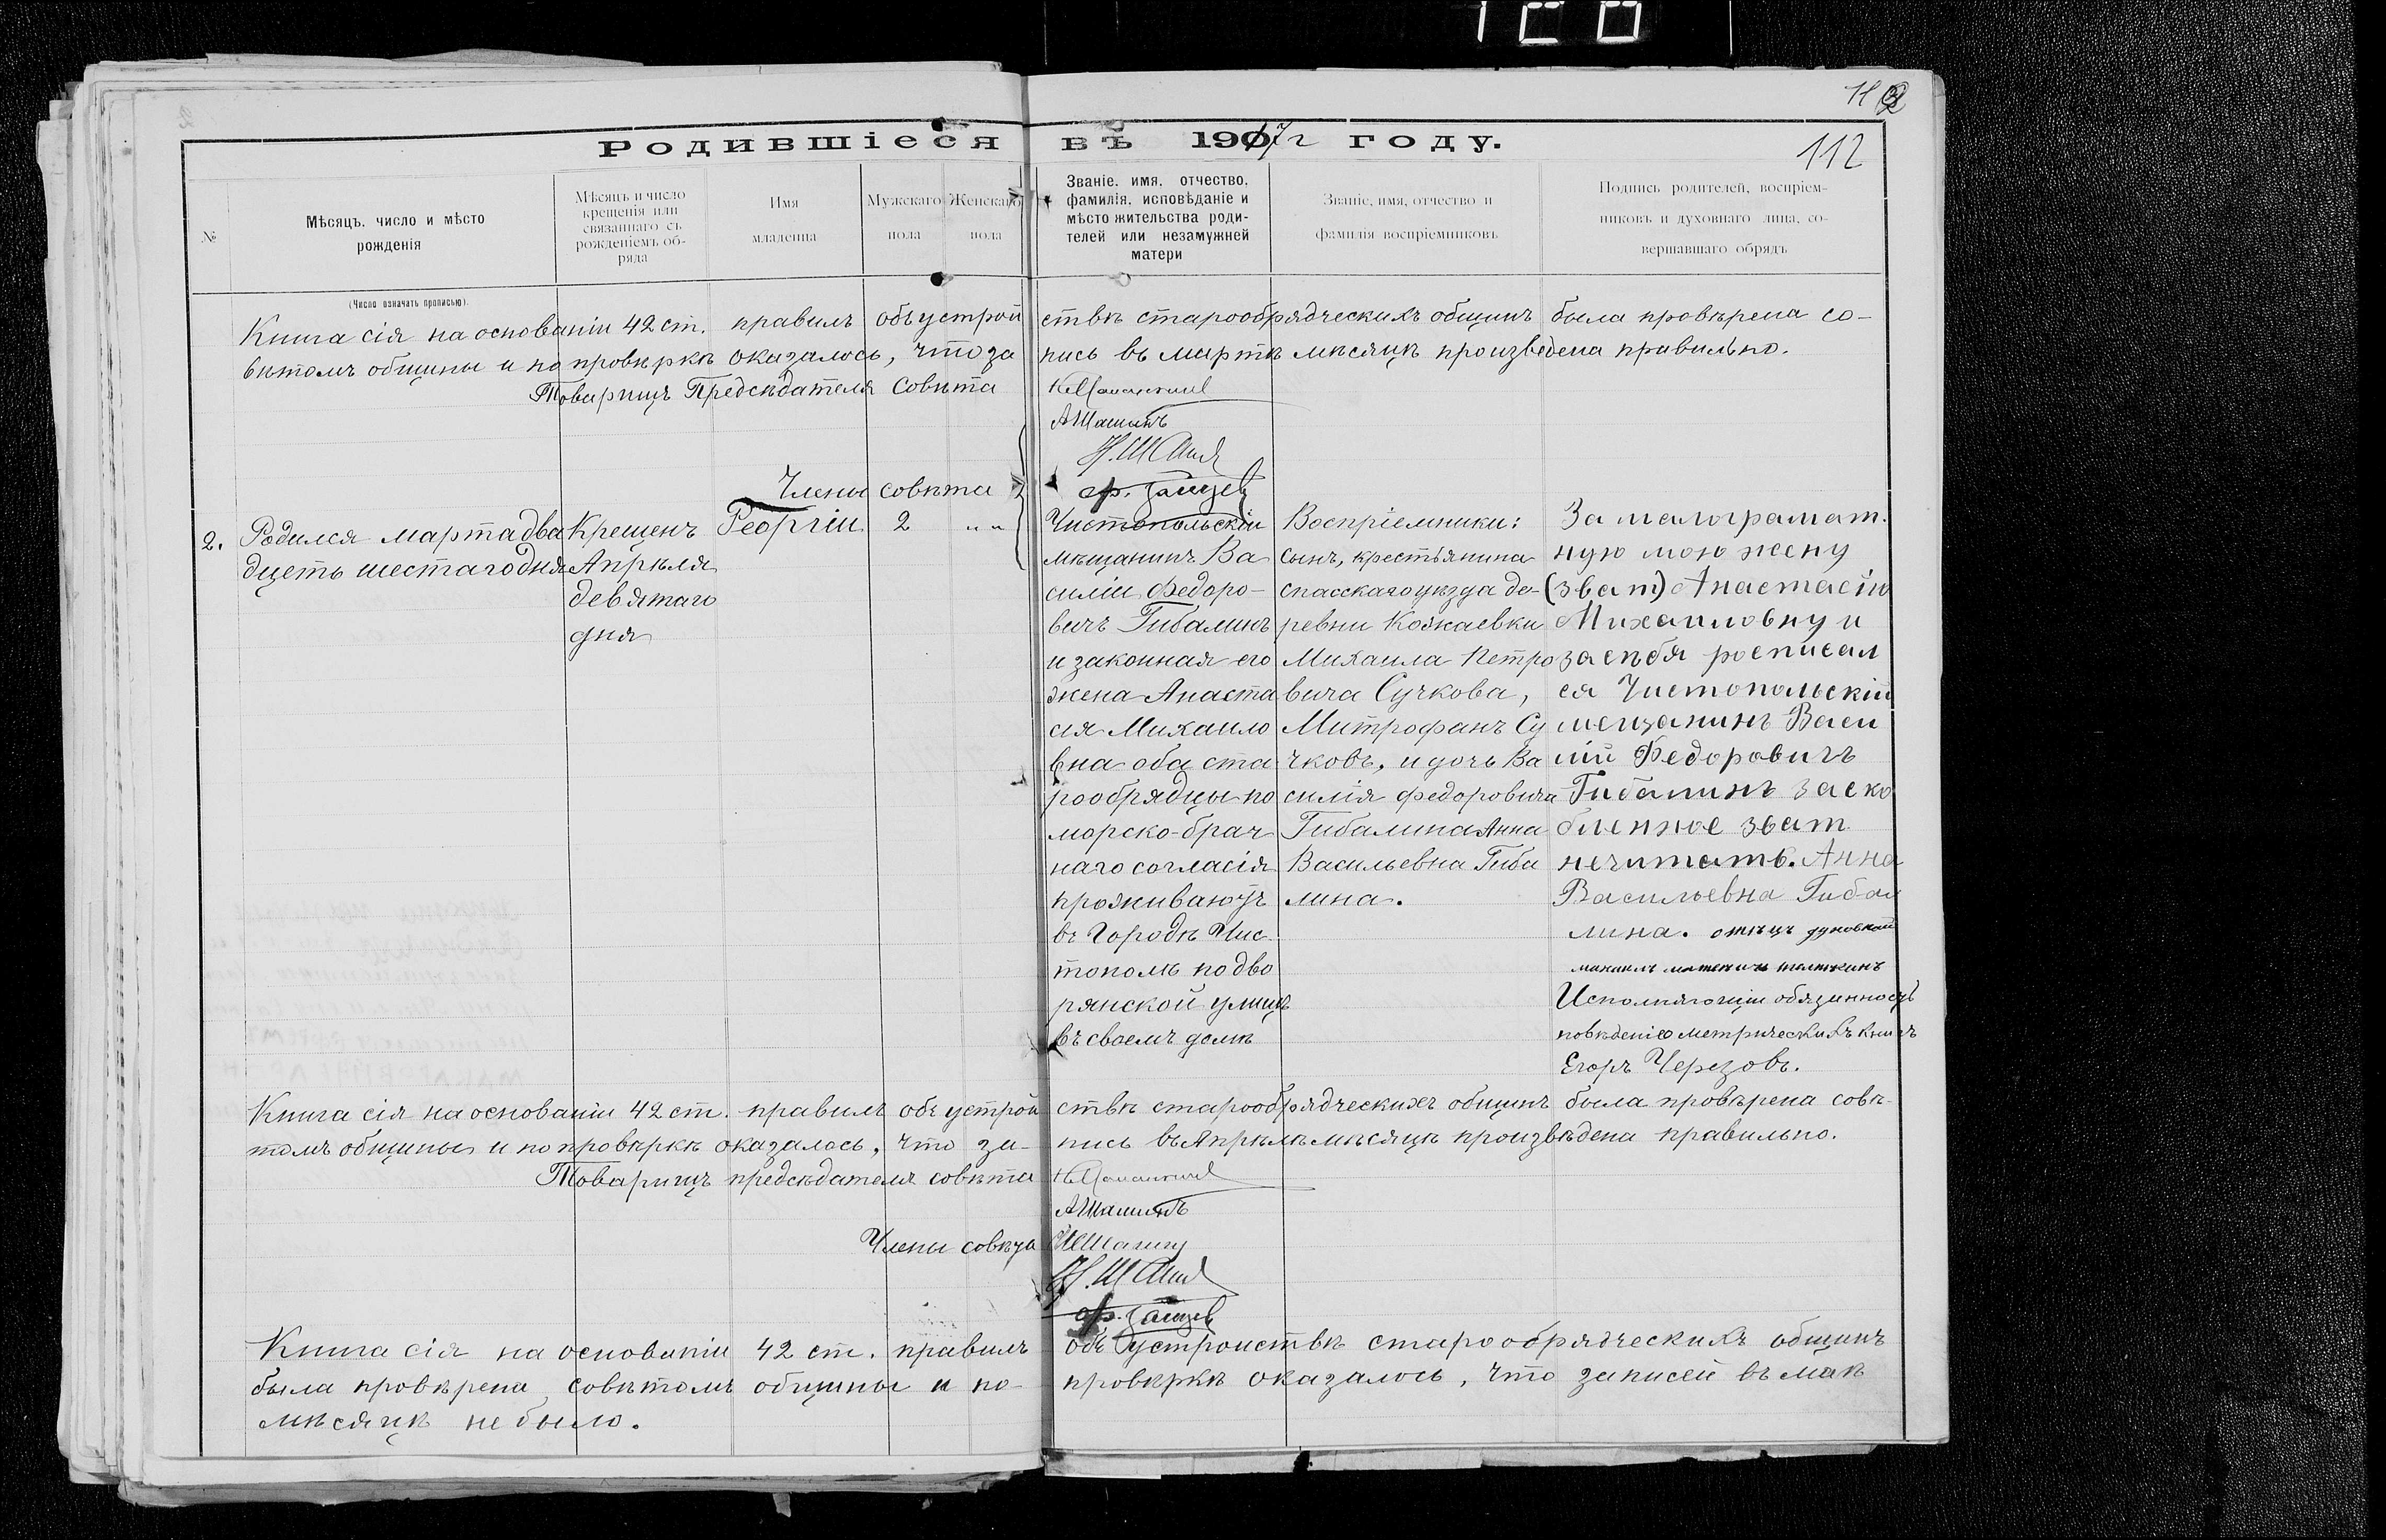 112
Родившіеся въ 1917 г году.
112
№
Мѣсяцъ, число и мѣсто
рожденія
Мѣсяцъ и число
крещенія или
связаннаго съ
рожденіемъ об-
ряда
Имя
младенца
Мужскаго
пола
Женскаго
пола
Званіе, имя, отчество,
фамилія, исповѣданіе и
мѣсто жительства роди-
телей или незамужней
матери
Званіе, имя, отчество и
фамилія воспріемниковъ
Подпись родителей, воспріем-
никовъ и духовнаго лица, со-
вершавшаго обрядъ
(Число означать прописью).
Книга сія на основаніи 42 ст. правилъ объ устрой ствѣ старообрядческихъ общинъ была провѣрена со-
вѣтомъ общины и по провѣркѣ оказалось, что за пись въ мартѣ мѣсяцѣ произведена правильно.
Товарищъ Предсѣдателя Совѣта
АШашинъ
Члены совѣта
2.
Родился марта два
дцеть шестаго дня
Крещенъ
Апрѣля
девятаго
дня
Георгіи
2
" "
Чистопольскіи
мѣщанинъ Ва
силіи Федоро-
вичъ Гибалинъ
и законная его
жена Анаста
сія Михаило
вна оба ста
рообрядцы по
морско-брач
наго согласія
проживаютъ
въ Городѣ Чис
тополѣ по дво
рянской улицѣ
въ своемъ домѣ
Воспріемники:
сынъ, крестьянина
спасскаго уѣзда де-
ревни Кожаевки
Михаила Петро
вича Сучкова,
Митрофанъ Су
чковъ, и дочь Ва
силія Федоровича
Гибалина Анна
Васильевна Гиба
лина.
За малограмат.
ную мою жену
(зват) Анастасію
Михаиловну и
за сѣбя росписал
ся Чистопольскій
мещанинъ Васи
лій Федоровичъ
Гибалинъ заско
бленное зват
нечитать. Анна
Васильевна Гибал
лина. отецъ духовной
Исполняющіи обязанность
повѣденію метрическихъ книгъ
Егоръ Черезовъ.
Книга сія на основаніи 42 ст. правилъ объ устрой ствѣ старообрядческихъ общинъ была провѣрена совѣ-
томъ общины и по провѣркѣ оказалось, что за- пись въ Апрѣлѣ мѣсяцѣ произвѣдена правильно.
Товарищъ предсѣдателя совѣта
АШашинъ
Члены совѣта
Книга сія на основаніи 42 ст. правилъ объ устроиствѣ старообрядческихъ общинъ
была провѣрена совѣтомъ общины и по- провѣркѣ оказалось, что записей въ маѣ
мѣсяцѣ не было.